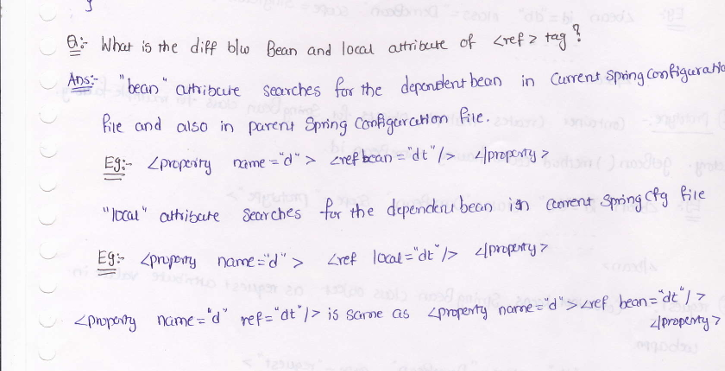 Q:- What is the diff b/w Bean and local attribute of <ref> tag?
Ans:- "bean" attribute searches for the dependent bean in current Spring Configuratio
file and also in parent Spring Configuration file.
Eg:- <property name="d"> <ref bean="dt"/> </property>
"local" attribute searches for the dependent bean in current Spring cfg file
Eg:- <property name="d"> <ref local="dt"/> </property>
<property name="d" ref="dt"/> is same as <property name="d"> <ref bean="dt"/>
</property>